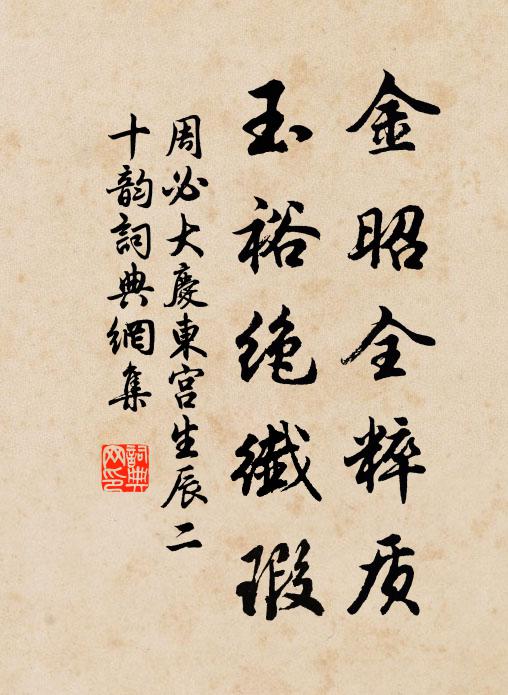 金昭全粹质
玉裕绝纤瑕
周必大慶東宫生辰二
十韵詞典網集
詞典网印